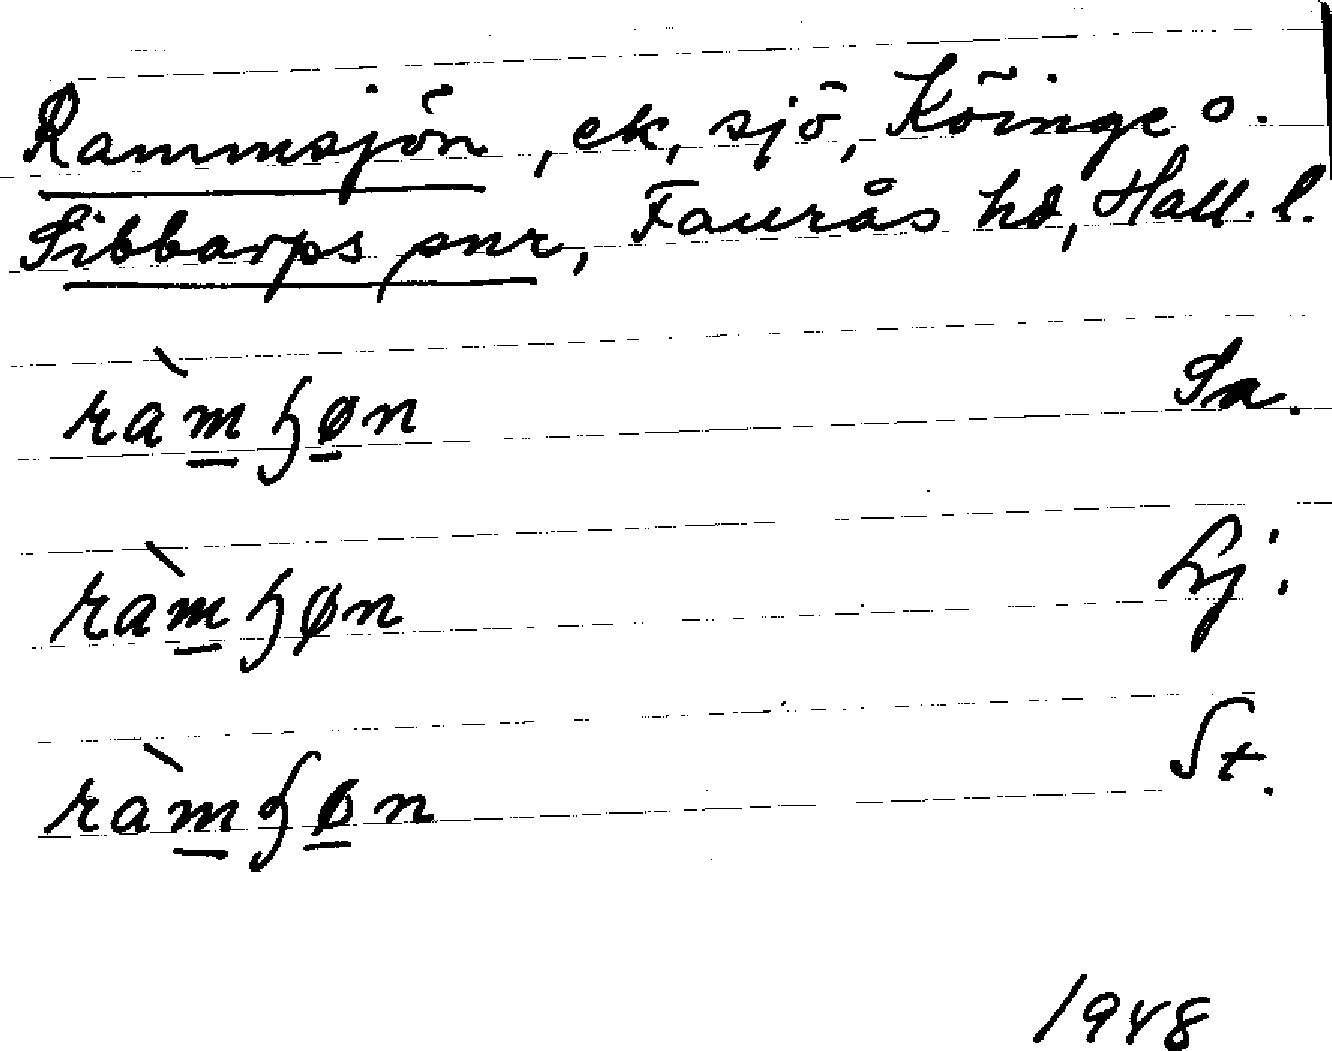 Rammsjön, ek, sjö, Köinge o.
Sibbarps snr, Faurås hd, Hall. l.
ràmɧøn Sa.
ràmɧøn Lj.
ràmɧøn St.
1948